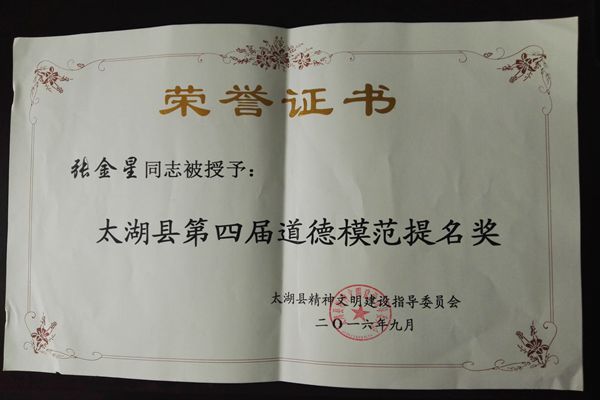 荣誉证书
张金星同志被授予：
太湖县第四届道德模范提名奖
太湖县精神文明建设指导委员会
二〇一六年九月